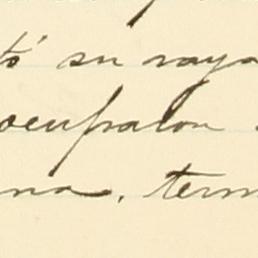 tó su raya
ocuparon
na, term